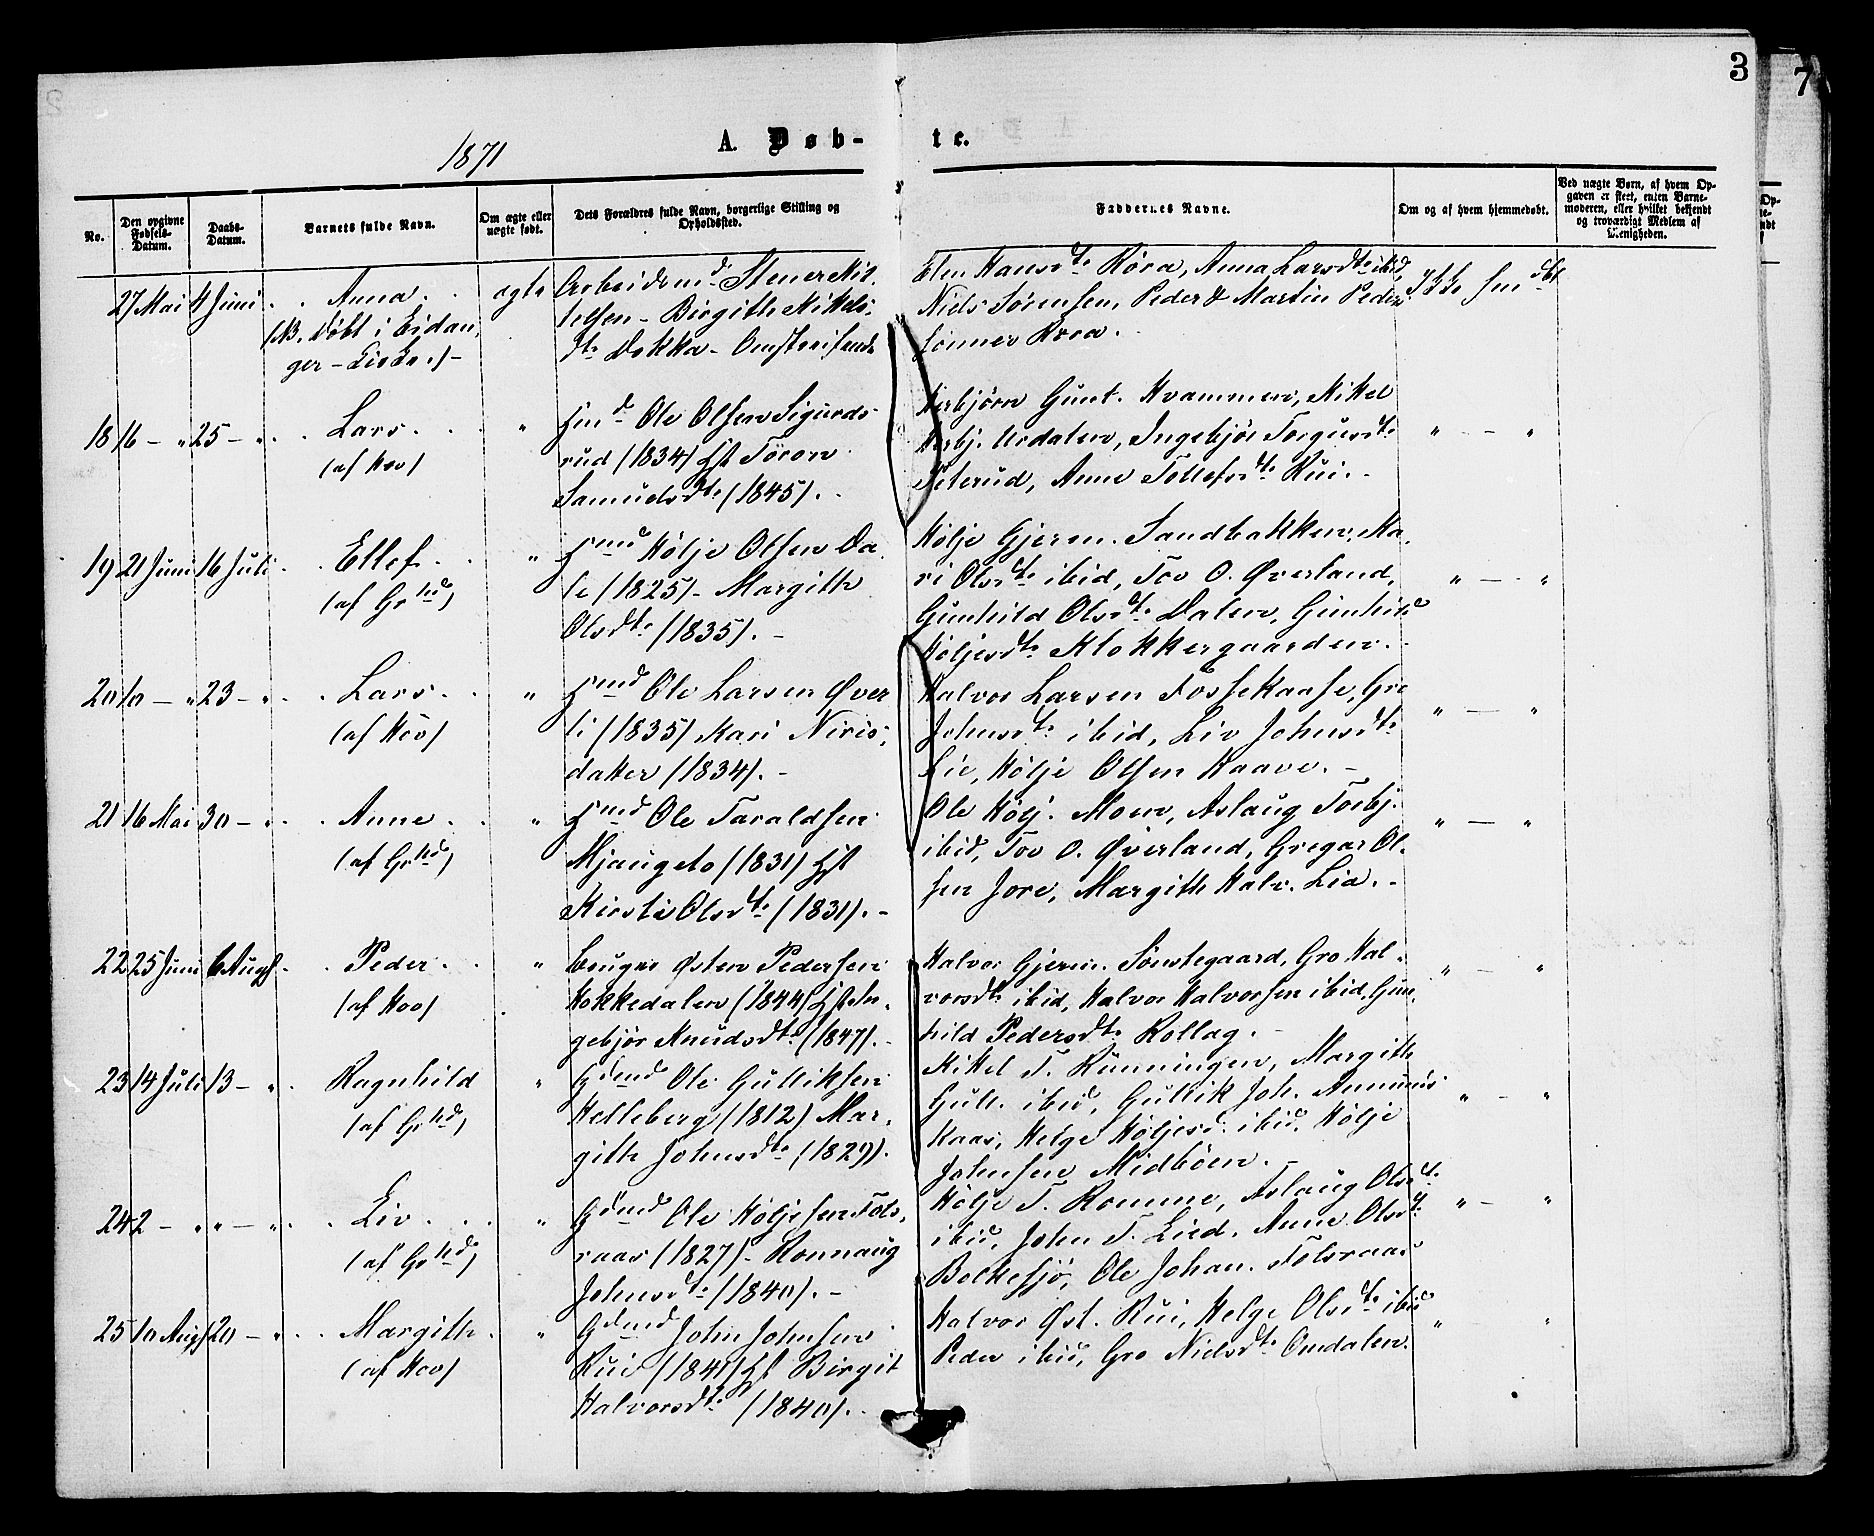 3
7
1871
A. Døb-
te.
No.
Den opgivne Fødsels-Datum.
Daabs-Datum.
Barnets fulde Navn.
Om ægte eller uægte født.
Dets Forældres fulde Navn, borgerlige Stilling og Opholdssted.
Faddernes Navne.
Om og af hvem hjemmedøbt.
Ved uægte Børn, af hvem Opgaven er skeet, enten Barnemoderen, eller hvilket bekjendt og troværdigt Medlem af Menigheden.
27 Mai 4 Juni . . Anna . . ægte Arbeidsmd.
(NB. Døbt i Eidan,
ger -
Birgith Nikels,
dtr Dokka -
Elen Hansdtr Röra, Anna Larsdtr ibid,
Niels Sörensen, Peder & Martin Peder
sönner Röra.
18 16 - " 25 - " . . Lars . . "
(af Hov)
Ole Olsen Sigurds
rud (1834)
Samuelsdtr (1845).
Gunt. Kvammen, Nikel
Ingebjör Torgusdtr
Anne Tollefsdtr Rui. -
" - "
19 21 Juni 16 Juli . . Ellef . . "
(af Grhd)
Hölje Olsen Da
le (1825) - Margith
Olsdtr (1835). -
Hölje Gjerm. Sandbakken, Ka,
ri Olsdtr ibid, Tov O. Øverland,
Gunhild Olsdtr Dalen, Gunhild
Höljesdtr Klokkergaarden.
" - "
20 10 - " 23 - " . . Lars . . "
(af Hov)
Ole Larsen Øver
li (1835) Kari
daker (1834). -
Halvor Larsen Fossekaase, Gro
Johnsdtr ibid, Liv Johnsdtr
Lie, Hölje Olsen Kaave. -
" - "
21 16 Mai 30 - " . . Anne . . "
(af Grhd)
Ole Taraldsen
Mjaugeto (1831)
Kirsti Olsdtr (1831). -
Ole Hölj. Moen, Aslaug Torbj.
ibid, Tov O. Øverland, Gregar Ol-
sen Jore, Margith Halv. Lia. -
" - "
22 25 Juni 6 Augs . . Peder . . "
(af Hov)
Østen Pedersen
Hokkedalen (1844)
gebjör Knudsdtr (1847). -
Halvor Gjerm. Sönstegaard, Gro Hal-
vorsdtr ibid, Halvor Halvorsen ibid, Gun,
hild Pedersdtr Rollag. -
" - "
23 14 Juli 13 - " . Ragnhild "
(af Grhd)
Ole Gulliksen
Helleberg (1812) Mar,
gith Johnsdtr (1829).
Nikel T. Rünningen, Margith
Gull. ibid, Gullik Joh.
kaas, Helge Höljesd. ibid, Hölje
Johnsen Midböen. -
" - "
24 2 - " " - " . . Liv . . . "
(af Grhd)
Ole Höljesen Fols,
raas (1827) - Ronnaug
Johnsdtr (1840). -
Hölje T. Romme, Aslaug Olsdtr
ibid, John T. Lied, Anne Olsdtr
Bolkesjö, Ole Johan. Folsraas
" - "
25 10 Augs 20 - " . . Margith . "
(af Hov)
John Johnsen
Rui (1841) Birgit
Halvorsdtr (1840). -
Halvor Øst. Rui, Helge Olsdtr ibid
Peder ibid, Gro Nielsdtr Omdalen.
" "